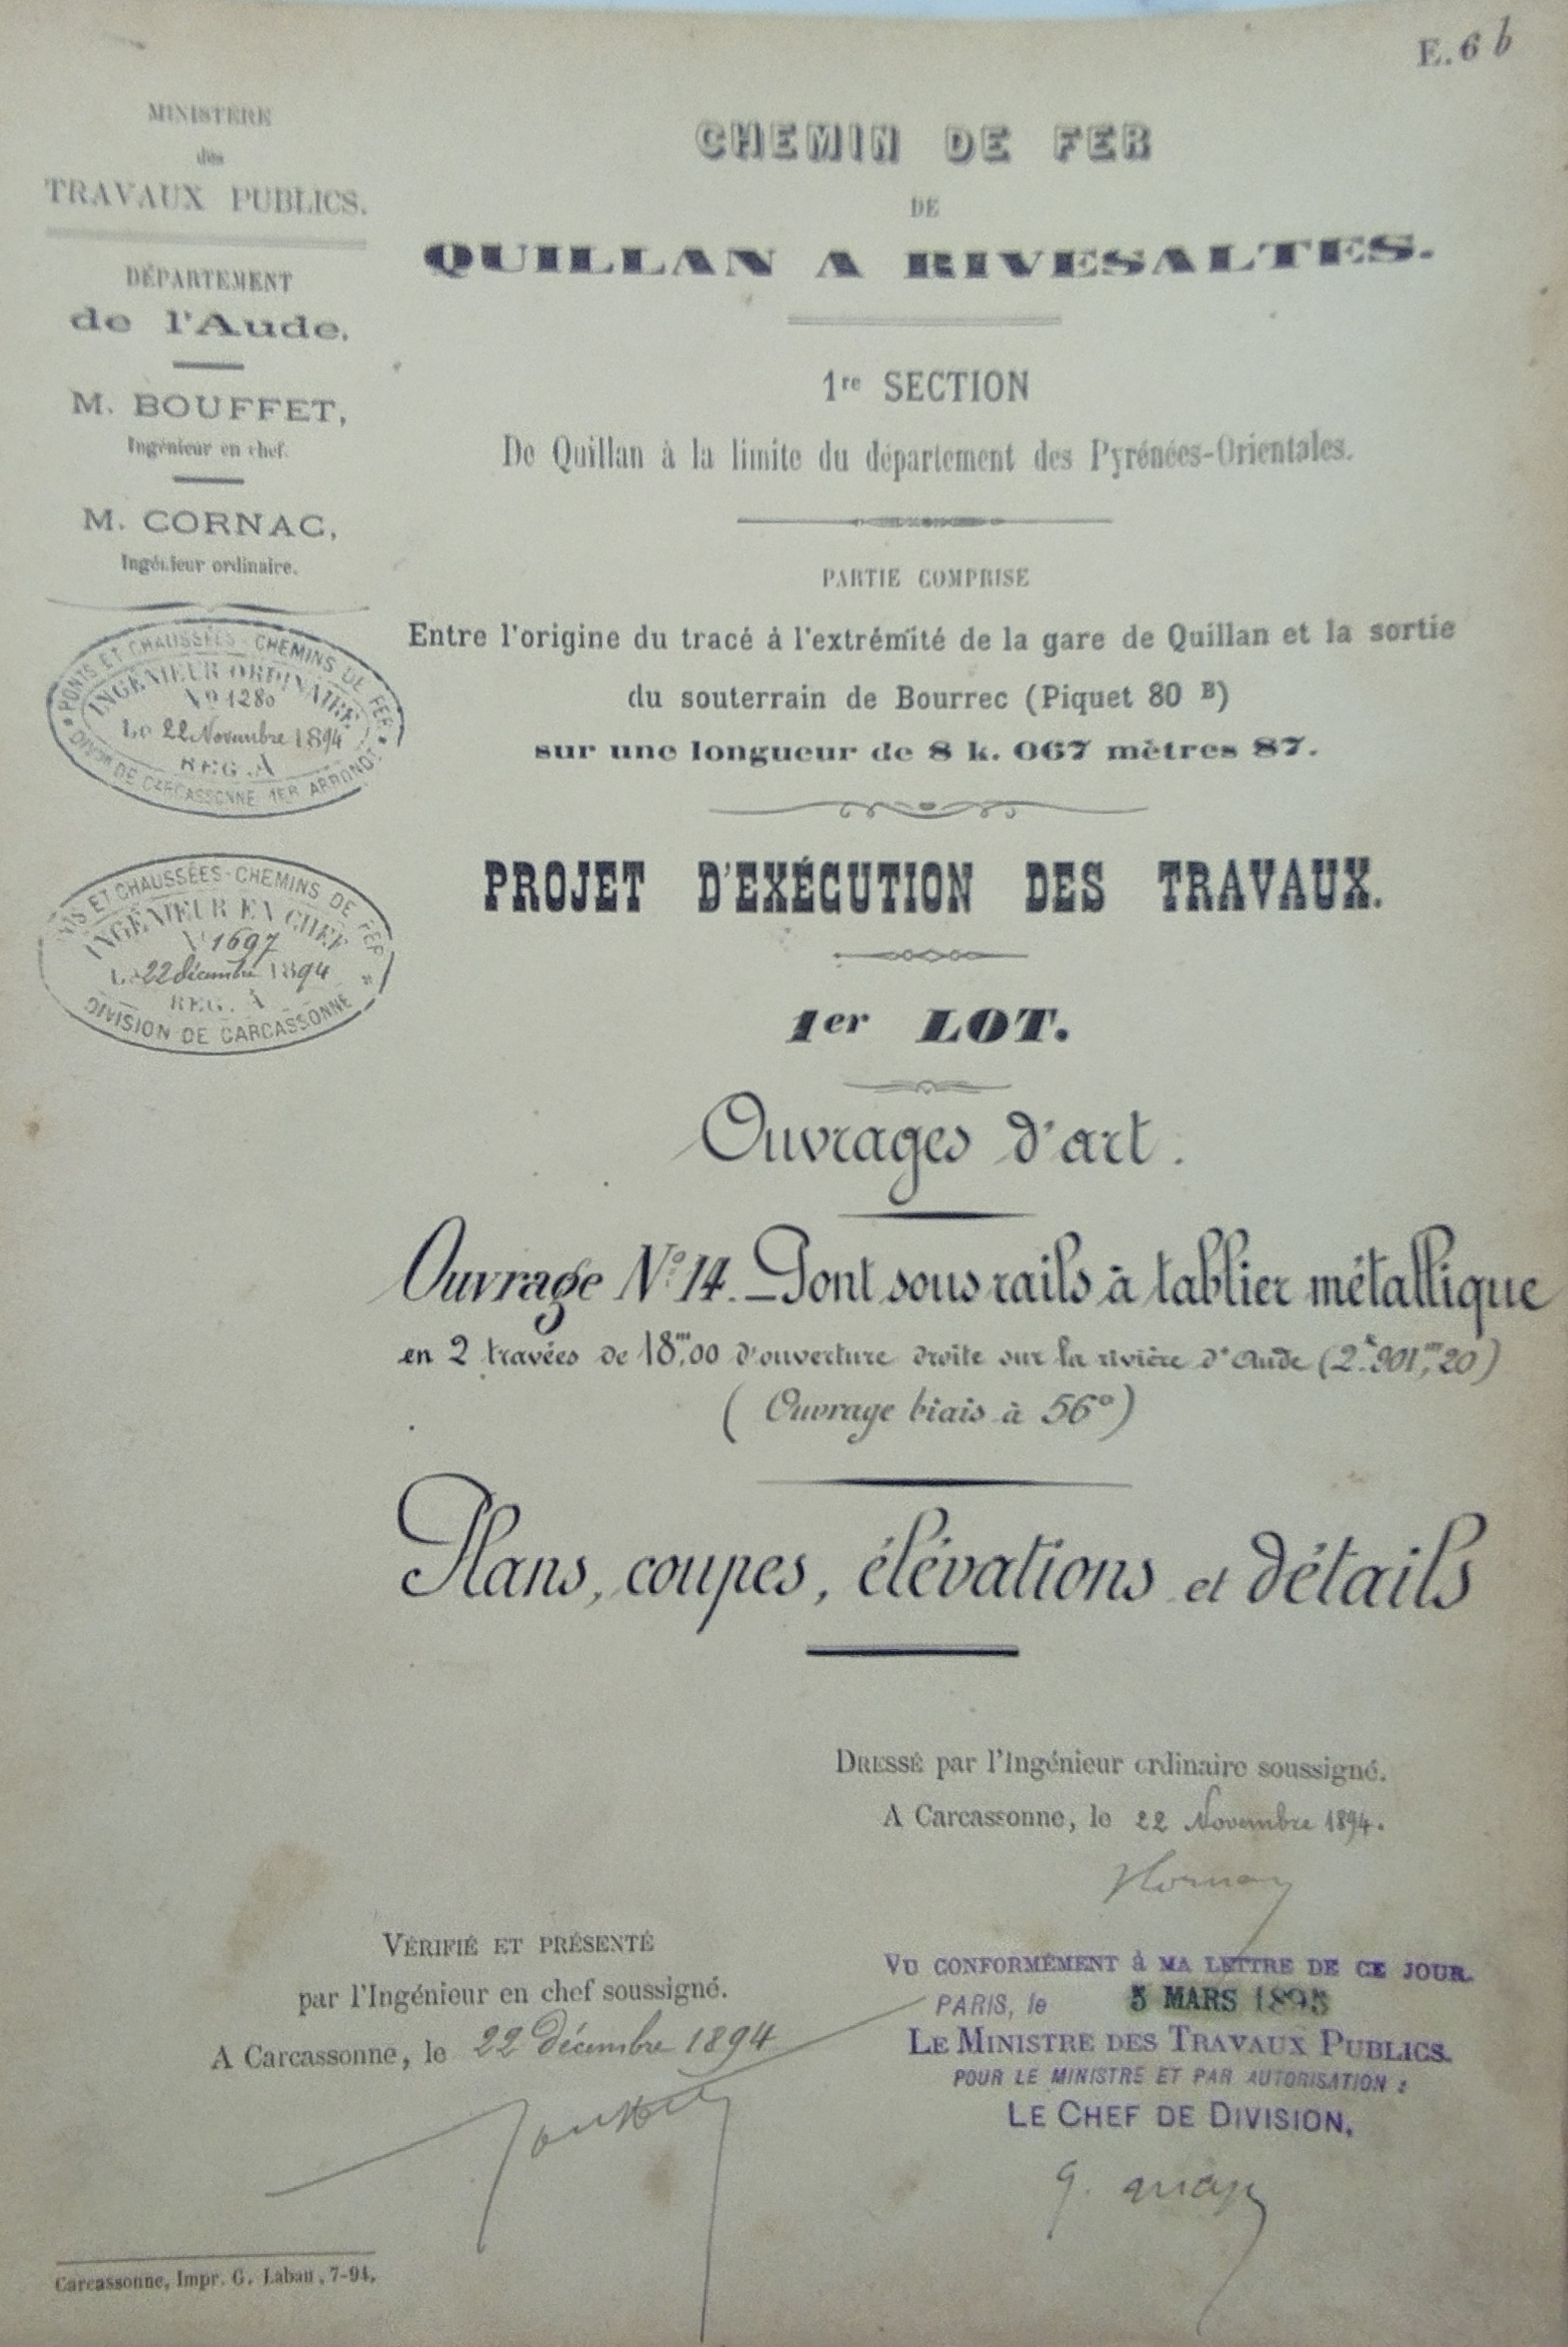 E. 6 b
MINISTÈRE
des
TRAVAUX PUBLICS.
DÉPARTEMENT
de l'Aude.
M. BOUFFET,
Ingénieur en chef.
M. CORNAC,
Ingénieur ordinaire.
PONTS ET CHAUSSÉES - CHEMINS DE FER
INGÉNIEUR ORDINAIRE
No 1280
Le 22 Novembre 1894
REG. A
DIVon DE CARCASSONNE 1ER ARRONDT
PONTS ET CHAUSSÉES - CHEMINS DE FER
INGÉNIEUR EN CHEF
No 1697
Le 22 décembre 1894
REG. A
DIVISION DE CARCASSONNE
CHEMIN DE FER
DE
QUILLAN A RIVESALTES.
1re SECTION
De Quillan à la limite du département des Pyrénées-Orientales.
PARTIE COMPRISE
Entre l'origine du tracé à l'extrémité de la gare de Quillan et la sortie
du souterrain de Bourrec (Piquet 80 B)
sur une longueur de 8 k. 067 mètres 87.
PROJET D'EXÉCUTION DES TRAVAUX.
1er LOT.
Ouvrages d'art.
Ouvrage No 14. _ Pont sous rails à tablier métallique
en 2 travées de 18m,00 d'ouverture droite sur la rivière d'Aude (2k 901m,20)
( Ouvrage biais à 56°)
Plans, coupes, élévations et détails
DRESSÉ par l'Ingénieur ordinaire soussigné.
A Carcassonne, le 22 Novembre 1894.
VÉRIFIÉ ET PRÉSENTÉ
par l'Ingénieur en chef soussigné.
A Carcassonne, le 22 décembre 1894
VU CONFORMÉMENT à MA LETTRE DE CE JOUR.
PARIS, le 5 MARS 1895
LE MINISTRE DES TRAVAUX PUBLICS.
POUR LE MINISTRE ET PAR AUTORISATION :
LE CHEF DE DIVISION,
Carcassonne, Impr. G. Labau, 7-94.